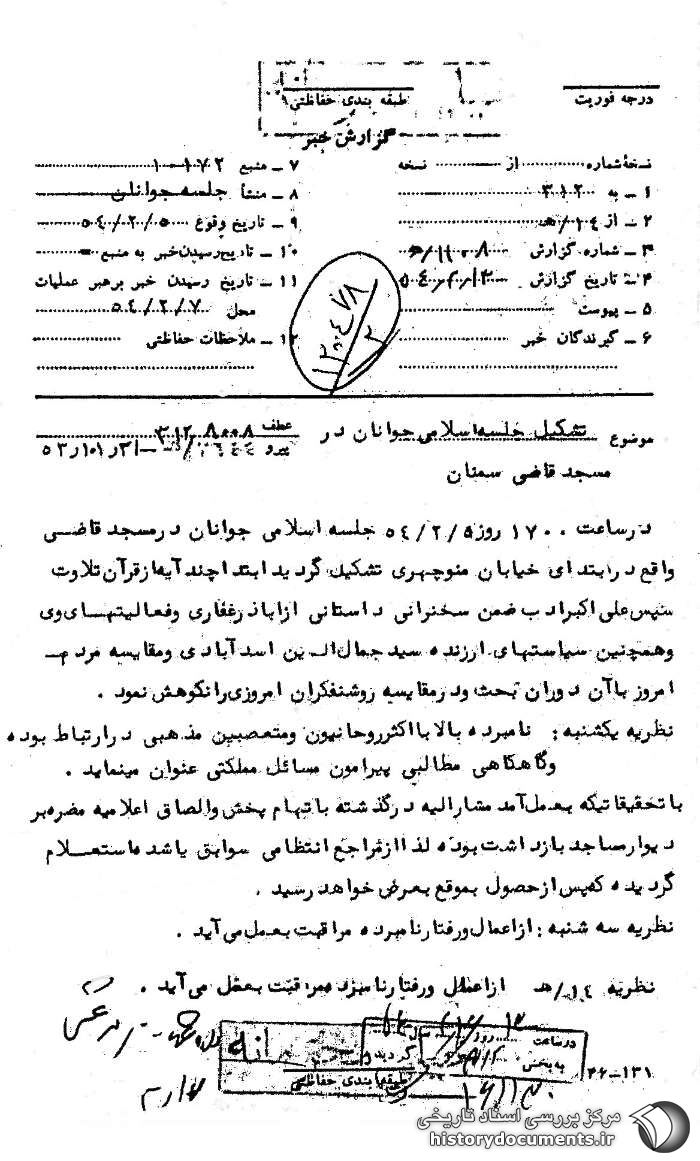 درجه فوریت
طبقه بندی حفاظتی
گزارش خبر
نسخهٔ شماره از نسخه
۷ ـ منبع ۱۰۱۷۲
۱ ـ به ۳۱۲
۸ ـ منشأ جلسه جوانان
۲ ـ از ۱۴/هـ
۹ ـ تاریخ وقوع ۵۴/۲/۵
۳ ـ شماره گزارش
۱۰ ـ تاریخ رسیدن خبر به منبع
۴ ـ تاریخ گزارش
۱۱ ـ تاریخ رسیدن خبر برهبر عملیات
۵ ـ پیوست
محل ۵۴/۲/۷
۶ ـ گیرندگان خبر
۱۲ ـ ملاحظات حفاظتی
موضوع تشکیل جلسه اسلامی جوانان در
عطف
پیرو
مسجد قاضی سمنان
درساعت ۱۷۰۰ روز ۵۴/۲/۵ جلسه اسلامی جوانان درمسجد قاضی
واقع درابتدای خیابان منوچهری تشکیل گردید ابتدا چند آیه از قرآن تلاوت
سپس علی اکبر ادب ضمن سخنرانی داستانی از اباذر غفاری وفعالیتهای وی
وهمچنین سیاستهای ارزنده سید جمال الدین اسدآبادی ومقایسه مردم
امروز باآن دوران بحث ودرمقایسه روشنفکران امروزی رانکوهش نمود .
نظریه یکشنبه : نامبرده بالا بااکثر روحانیون ومتعصبین مذهبی درارتباط بوده
وگاهگاهی مطالبی پیرامون مسائل مملکتی عنوان مینماید .
با تحقیقاتیکه بعمل آمد مشارالیه درگذشته باتهام پخش والصاق اعلامیه مضره بر
دیوار مساجد بازداشت بوده لذا ازمراجع انتظامی سوابق استعلام
گردیده که پس از حصول بموقع بعرض خواهد رسید .
نظریه سه شنبه : ازاعمال ورفتار نامبرده مراقبت بعمل می آید .
نظریه ۱۴/هـ ازاعمال ورفتار نامبرده مراقبت بعمل می آید .
درساعت روز سال
به بخش گردید
طبقه بندی حفاظتی
۲۶ـ۱۳۱
مرکز بررسی اسناد تاریخی
historydocuments.ir